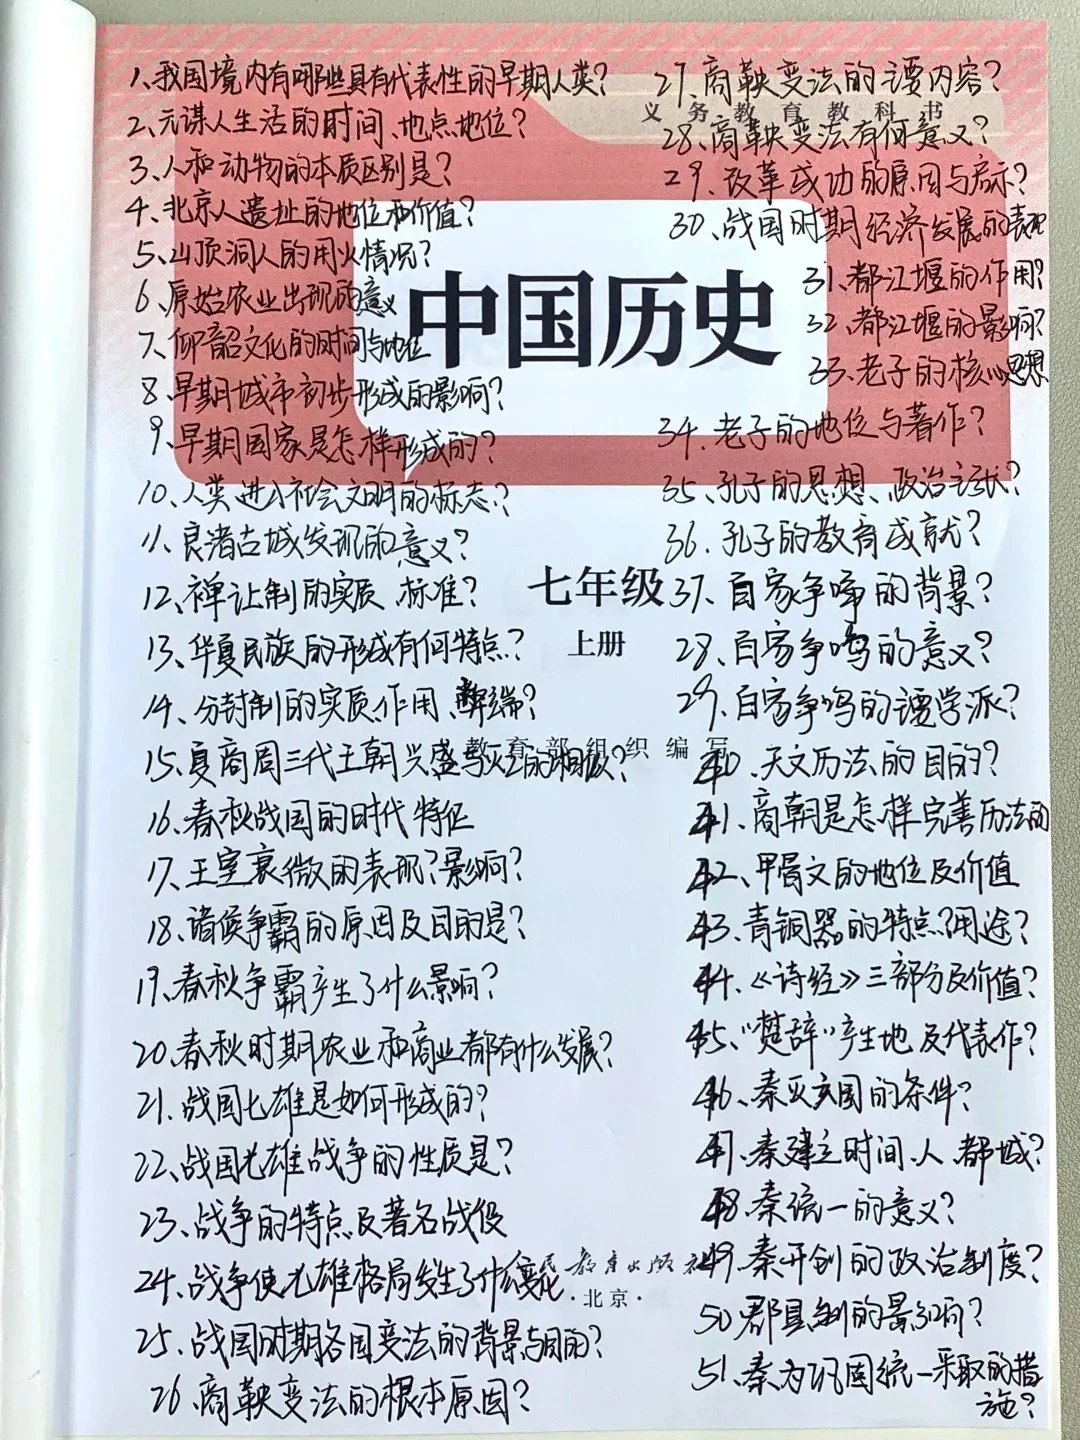 1、我国境内有哪些具有代表性的早期人类？
2、元谋人生活的时间、地点、地位？
3、人和动物的本质区别是？
4、北京人遗址的地位和价值？
5、山顶洞人的用火情况？
6、原始农业出现的意义
7、仰韶文化的时间与地位
8、早期城市初步形成的影响？
9、早期国家是怎样形成的？
10、人类进入社会文明的标志？
11、良渚古城发现的意义？
12、禅让制的实质、标准？
13、华夏民族的形成有何特点？
14、分封制的实质、作用、弊端？
15、夏商周三代王朝兴盛与灭亡的相似？
16、春秋战国的时代特征
17、王室衰微的表现？影响？
18、诸侯争霸的原因及目的是？
19、春秋争霸产生了什么影响？
20、春秋时期农业和商业都有什么发展？
21、战国七雄是如何形成的？
22、战国七雄战争的性质是？
23、战争的特点及著名战役
24、战争使七雄格局发生了什么变化
25、战国时期各国变法的背景与目的？
26、商鞅变法的根本原因？
义务教育教科书
中国历史
七年级
上册
教育部组织编写
人民教育出版社
·北京·
27、商鞅变法的主要内容？
28、商鞅变法有何意义？
29、改革成功的原因与启示？
30、战国时期经济发展的表现
31、都江堰的作用？
32、都江堰的影响？
33、老子的核心思想
34、老子的地位与著作？
35、孔子的思想、政治主张？
36、孔子的教育成就？
37、百家争鸣的背景？
28、百家争鸣的意义？
29、百家争鸣的主要学派？
40、天文历法的目的？
41、商朝是怎样完善历法的
42、甲骨文的地位及价值
43、青铜器的特点？用途？
44、《诗经》三部分及价值？
45、“楚辞”产生地及代表作？
46、秦灭六国的条件？
47、秦建立时间、人、都城？
48、秦统一的意义？
49、秦开创的政治制度？
50 郡县制的影响？
51、秦为巩固统一采取的措
施？